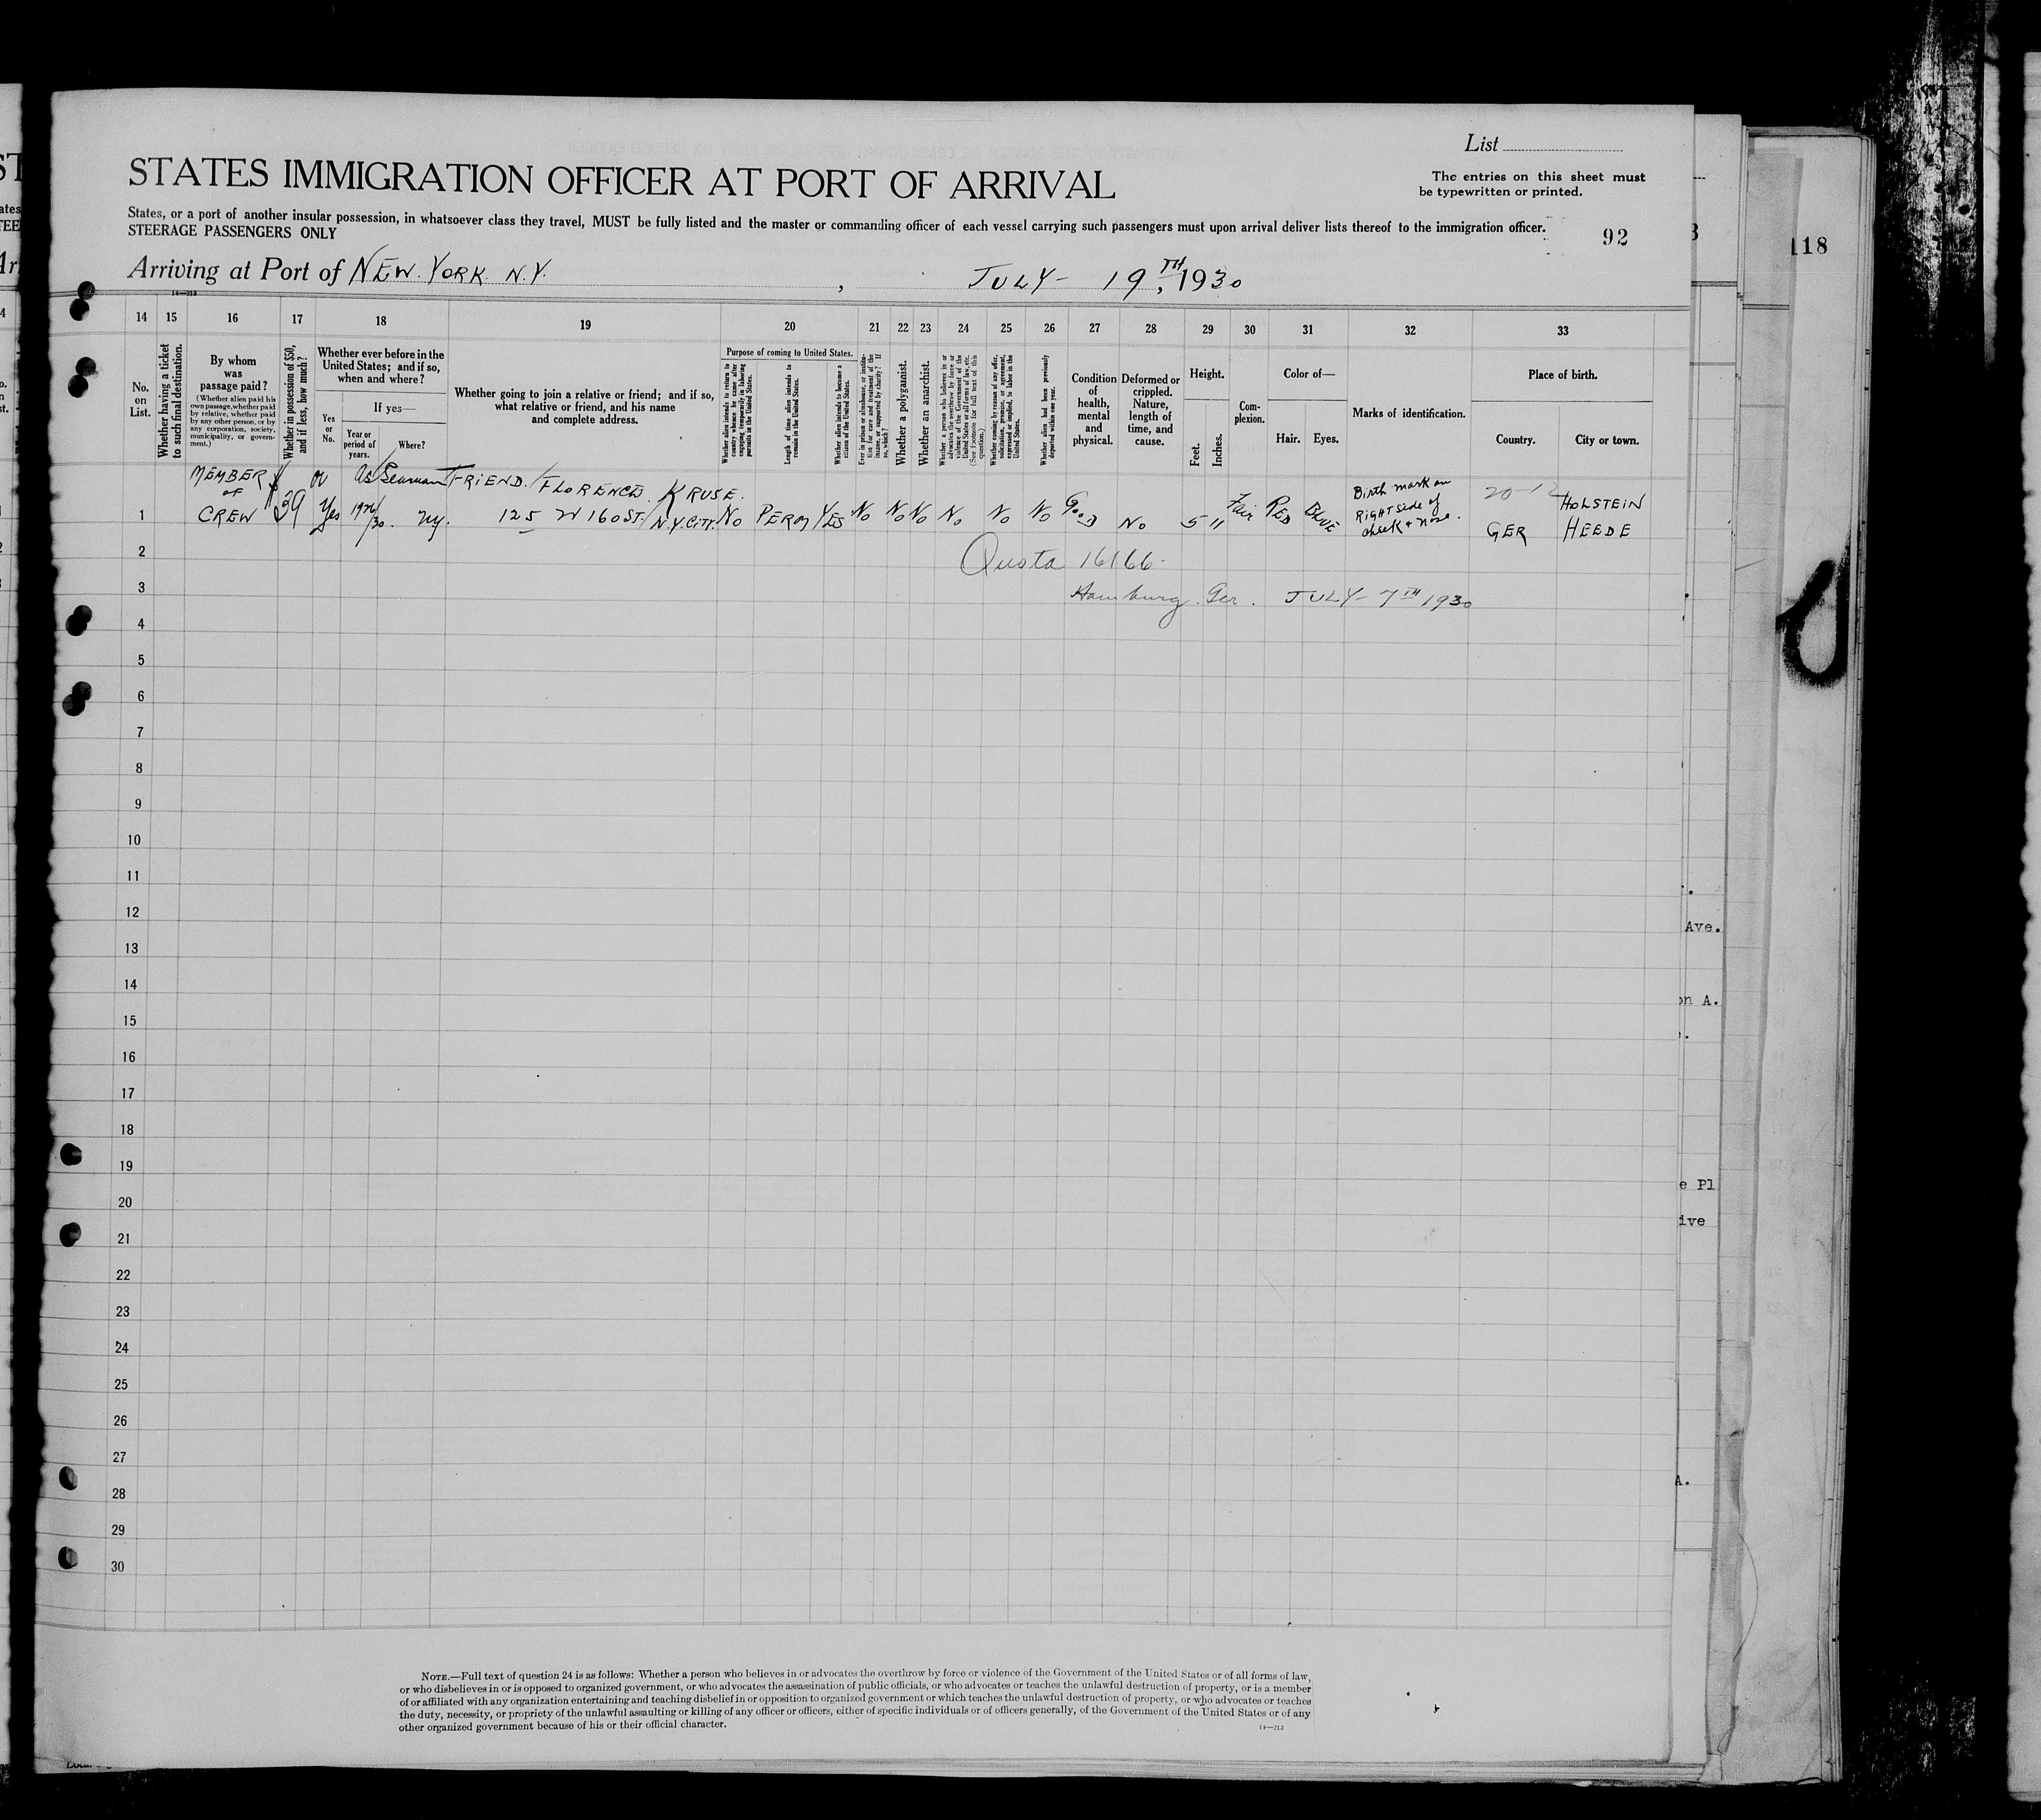 List
STATES IMMIGRATION OFFICER AT PORT OF ARRIVAL
The entries on this sheet must
be typewritten or printed.
States, or a port of another insular possession, in whatsoever class they travel, MUST be fully listed and the master or commanding officer of each vessel carrying such passengers must upon arrival deliver lists thereof to the immigration officer.
STEERAGE PASSENGERS ONLY
92
118
Arriving at Port of NEW YORK N.Y. , JULY- 19TH, 1930
14—213
14 15 16 17 18 19 20 21 22 23 24 25 26 27 28 29 30 31 32 33
No. on List.
Whether having a ticket to such final destination.
By whom was passage paid?
(Whether alien paid his own passage, whether paid by relative, whether paid by any other person, or by any corporation, society, municipality, or government.)
Whether in possession of $50, and if less, how much?
Whether ever before in the United States; and if so, when and where?
Yes or No.
If yes—
Year or period of years.
Where?
Whether going to join a relative or friend; and if so, what relative or friend, and his name and complete address.
Purpose of coming to United States.
Whether alien intends to return to country whence he came after engaging temporarily in laboring pursuits in the United States.
Length of time alien intends to remain in the United States.
Whether alien intends to become a citizen of the United States.
Ever in prison or almshouse, or institution for care and treatment of the insane, or supported by charity? If so, which?
Whether a polygamist.
Whether an anarchist.
Whether a person who believes in or advocates the overthrow by force or violence of the Government of the United States or all forms of law, etc. (See footnote for full text of this question.)
Whether coming by reason of any offer, solicitation, promise, or agreement, expressed or implied, to labor in the United States.
Whether alien had been previously deported within one year.
Condition of health, mental and physical.
Deformed or crippled. Nature, length of time, and cause.
Height.
Feet.
Inches.
Complexion.
Color of—
Hair. Eyes.
Marks of identification.
Place of birth.
Country. City or town.
MEMBER of CREW
39 Yes 1926/30. as Seaman NY.
FRIEND. / FLORENCE KRUSE.
125 W 160 ST. / N.Y. CITY.
No PERM YES No No No No No No Good No 5 11 Fair RED BLUE
Birth mark on
RIGHT side of
cheek & nose.
GER
HOLSTEIN
HEEDE
Quota 16166-
Hamburg. Ger. JULY- 7TH 1930
1
2
3
4
5
6
7
8
9
10
11
12
13
14
15
16
17
18
19
20
21
22
23
24
25
26
27
28
29
30
Ave.
on A.
e Pl
ive
A.
NOTE.—Full text of question 24 is as follows: Whether a person who believes in or advocates the overthrow by force or violence of the Government of the United States or of all forms of law,
or who disbelieves in or is opposed to organized government, or who advocates the assassination of public officials, or who advocates or teaches the unlawful destruction of property, or is a member
of or affiliated with any organization entertaining and teaching disbelief in or opposition to organized government or which teaches the unlawful destruction of property, or who advocates or teaches
the duty, necessity, or propriety of the unlawful assaulting or killing of any officer or officers, either of specific individuals or of officers generally, of the Government of the United States or of any
other organized government because of his or their official character.
14—213